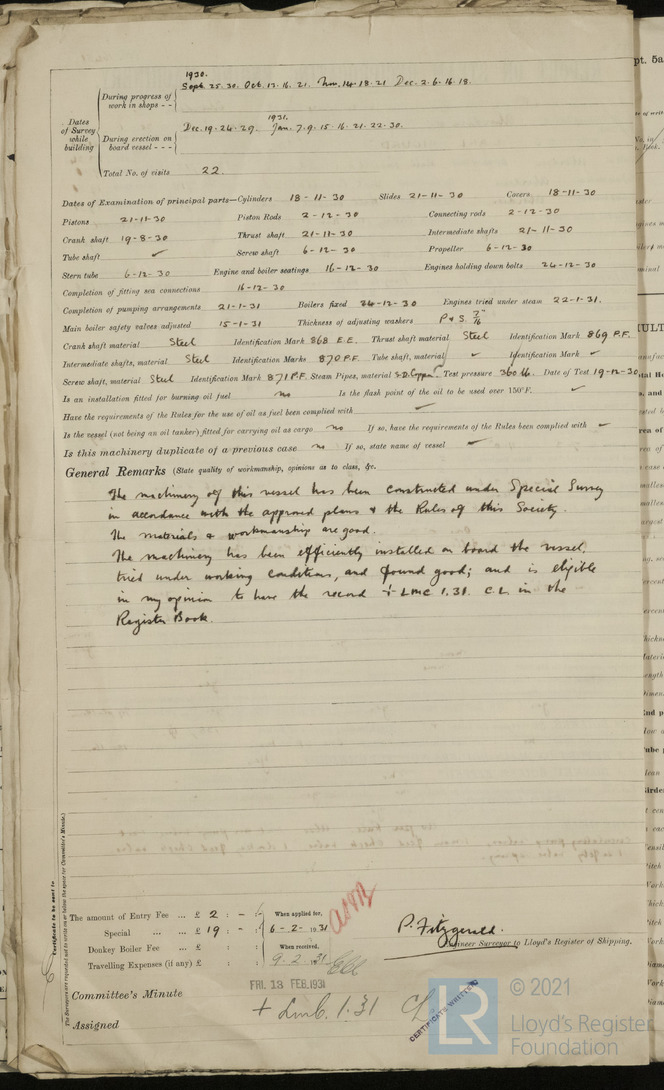 1930.
Sept. 25. 30. Oct. 13. 16. 21. Nov. 14. 18. 21 Dec. 2. 6. 16. 18.
During progress of work in shops - -
Dates of Survey while building
1931.
Dec. 19. 24. 29. Jan. 7. 9. 15. 16. 21. 22. 30.
During erection on board vessel - - -
Total No. of visits 22.
Dates of Examination of principal parts—Cylinders 18-11-30 Slides 21-11-30 Covers 18-11-30
Pistons 21-11-30 Piston Rods 2-12-30 Connecting rods 2-12-30
Crank shaft 19-8-30 Thrust shaft 21-11-30 Intermediate shafts 21-11-30
Tube shaft ✓ Screw shaft 6-12-30 Propeller 6-12-30
Stern tube 6-12-30 Engine and boiler seatings 16-12-30 Engines holding down bolts 24-12-30
Completion of fitting sea connections 16-12-30
Completion of pumping arrangements 21-1-31 Boilers fixed 24-12-30 Engines tried under steam 22-1-31.
Main boiler safety valves adjusted 15-1-31 Thickness of adjusting washers P & S. 7/16"
Crank shaft material Steel Identification Mark 868 E.E. Thrust shaft material Steel Identification Mark 869 P.F.
Intermediate shafts, material Steel Identification Marks 870 P.F. Tube shaft, material ✓ Identification Mark ✓
Screw shaft, material Steel Identification Mark 871 P.F. Steam Pipes, material S.D. Copper Test pressure 360 lb. Date of Test 19-12-30
Is an installation fitted for burning oil fuel no Is the flash point of the oil to be used over 150°F. ✓
Have the requirements of the Rules for the use of oil as fuel been complied with ✓
Is the vessel (not being an oil tanker) fitted for carrying oil as cargo no If so, have the requirements of the Rules been complied with ✓
Is this machinery duplicate of a previous case no If so, state name of vessel ✓
General Remarks (State quality of workmanship, opinions as to class, &c.
The machinery of this vessel has been constructed under Special Survey
in accordance with the approved plans & the Rules of this Society.
The materials & workmanship are good.
The machinery has been efficiently installed on board the vessel,
tried under working conditions, and found good; and is eligible
in my opinion to have the record + LMC 1.31. C.L. in the
Register Book.
Certificate to be sent to
(The Surveyors are requested not to write on or below the space for Committee's Minute.)
The amount of Entry Fee ... £ 2 : - : When applied for,
Special ... ... £ 19 : - : 6-2-1931
Donkey Boiler Fee ... £ : : When received,
Travelling Expenses (if any) £ : : 9.2.1931
P. Fitzgerald.
Engineer Surveyor to Lloyd's Register of Shipping.
Committee's Minute FRI. 13 FEB. 1931
Assigned + Lmb. 1.31 CL
CERTIFICATE WRITTEN
LR © 2021
Lloyd's Register
Foundation